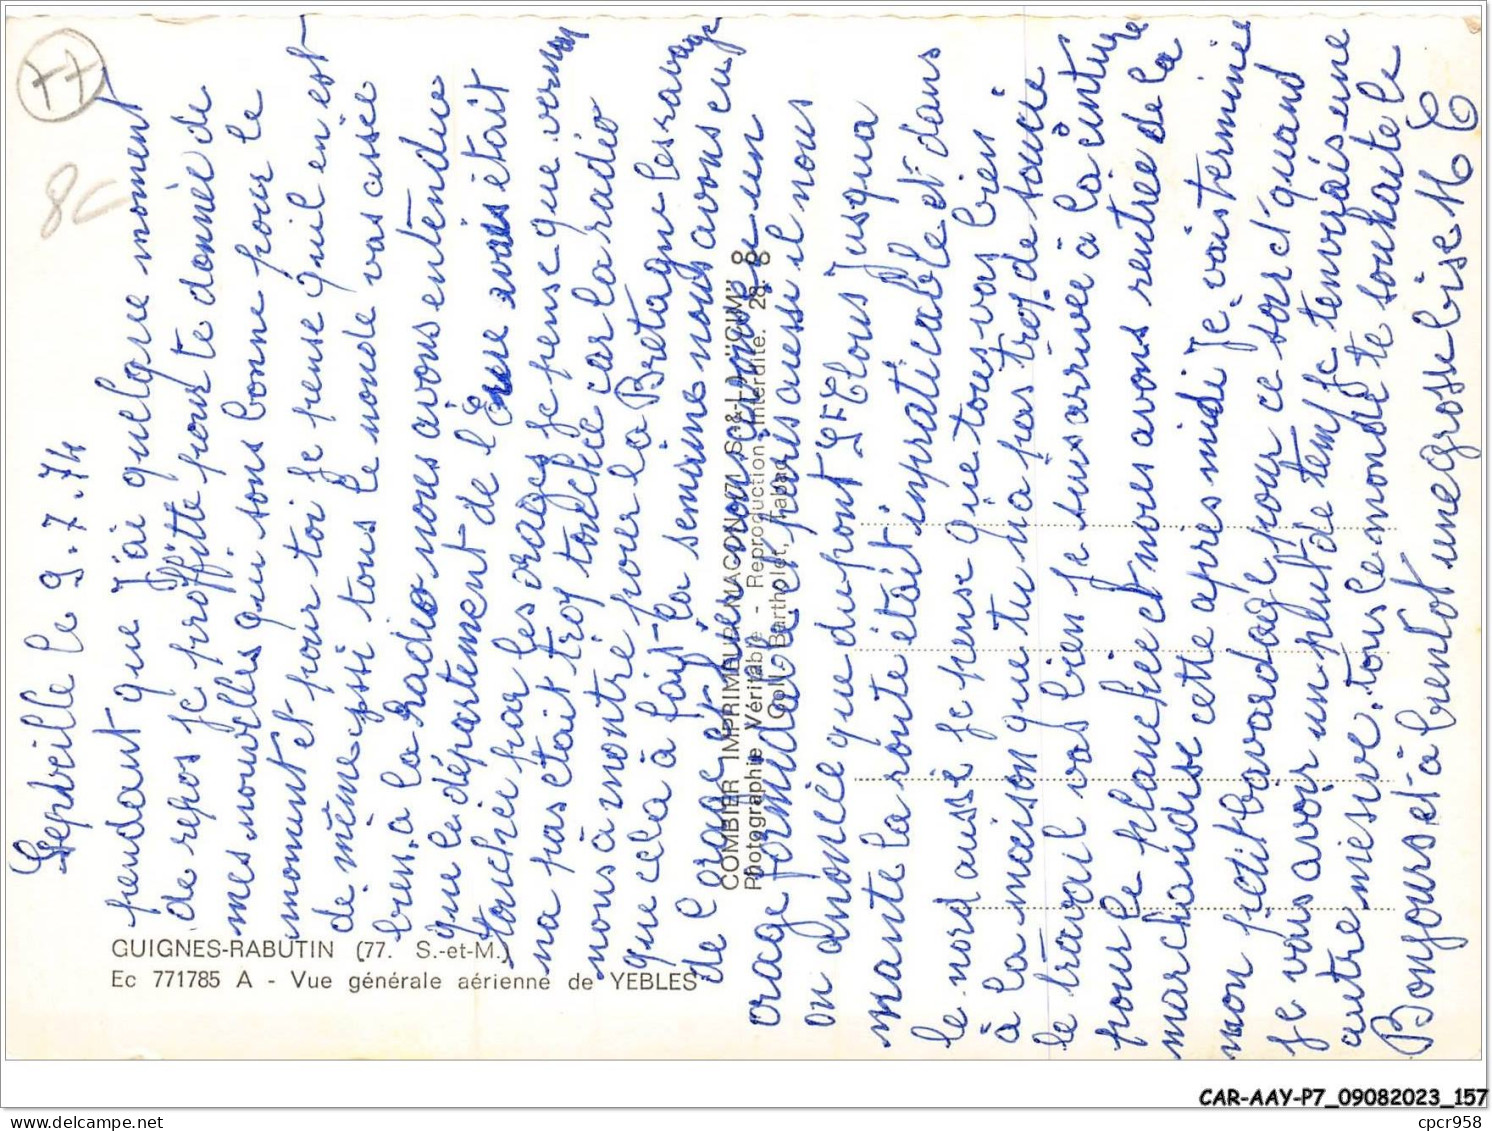 77
8c
Lepveille le 9.7.74
pendant que J'ai quelque moment
de repos je proffitte pour te donnée de
mes nouvelles qui sons bonne pour le
moment et pour toi je pense quil en est
de même issi tous le monde vas assée
bien, a la Radio nous avons entendue
que le département de l'Eure était
touchée par les orages je pense que vernon
na pas était trop touchée car la radio
nous à montré pour la Bretagne les ravage
que cela à fait la semaine nous avons eu
de l'orage et hier nous avons eu un
orage formidable et paris aussi il nous
on anoncée que du pont St Clous Jusqua
mante la route était inpraticable et dans
le nord aussi je pense que tous vas bien
à la maison que tu na pas trop de soucie
le travail vas bien je suis arrivée à la cinture
pour le planchée et nous avons rentrée de la
marchandise cette après midi Je vais terminée
mon petit bavardage pour ce soir et quand
je vais avoir un peut de temp je tenverrais une
autre missive. tous le monde te souhaite le
Bonjour et à bientot une grosse bise M C
GUIGNES-RABUTIN (77. S.-et-M.)
Ec 771785 A - Vue générale aérienne de YEBLES
COMBIER IMPRIMEUR MACON (71 S.-&-L.) "CIM"
Photographie Véritable - Reproduction Interdite. 28. 8
Coll. Bartholet, Tabac
CAR-AAY-P7_09082023_157
cpcr958